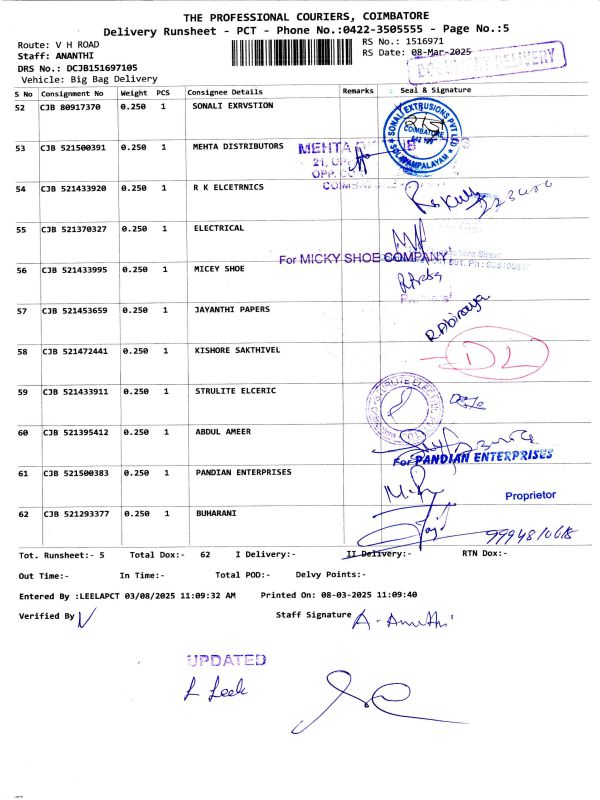 THE PROFESSIONAL COURIERS, COIMBATORE
Delivery Runsheet - PCT - Phone No.:0422-3505555 - Page No.:5
Route: V H ROAD
RS No.: 1516971
Staff: ANANTHI
RS Date: 08-Mar-2025
DRS No.: DCJB151697105
DOCUMENT DELIVERY
Vehicle: Big Bag Delivery
S No Consignment No Weight PCS Consignee Details Remarks Seal & Signature
52 CJB 80917370 0.250 1 SONALI EXRVSTION
SONALI EXTRUSIONS PVT LTD
COIMBATORE
53 CJB 521500391 0.250 1 MEHTA DISTRIBUTORS
MEHTA
54 CJB 521433920 0.250 1 R K ELCETRNICS
55 CJB 521370327 0.250 1 ELECTRICAL
For MICKY SHOE COMPANY
56 CJB 521433995 0.250 1 MICEY SHOE
57 CJB 521453659 0.250 1 JAYANTHI PAPERS
R.Abinaya
58 CJB 521472441 0.250 1 KISHORE SAKTHIVEL
DL
59 CJB 521433911 0.250 1 STRULITE ELCERIC
60 CJB 521395412 0.250 1 ABDUL AMEER
For PANDIAN ENTERPRISES
61 CJB 521500383 0.250 1 PANDIAN ENTERPRISES
Proprietor
62 CJB 521293377 0.250 1 BUHARANI
Tot. Runsheet:- 5 Total Dox:- 62 I Delivery:- II Delivery:- RTN Dox:-
Out Time:- In Time:- Total POD:- Delvy Points:-
Entered By :LEELAPCT 03/08/2025 11:09:32 AM Printed On: 08-03-2025 11:09:40
Verified By Staff Signature
UPDATED